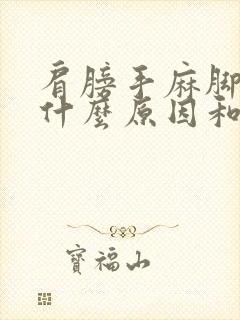 肩膀手麻腳
什麼原因和
寶福山